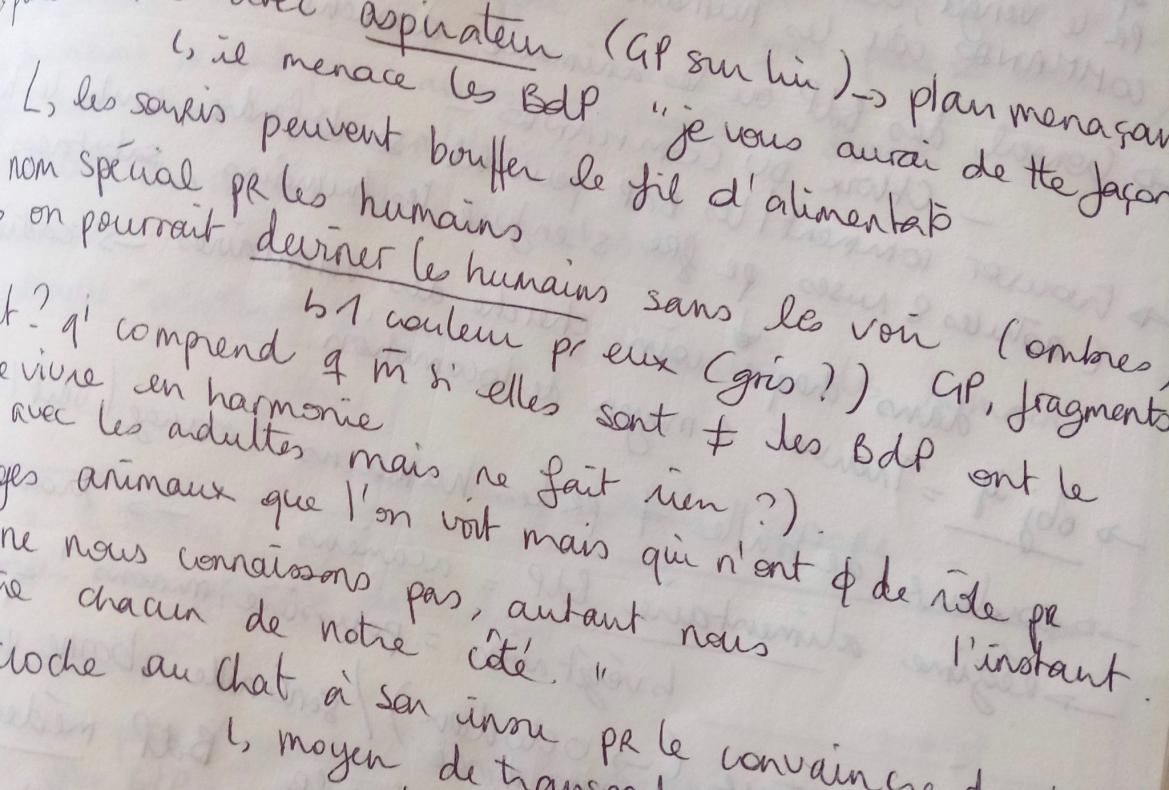 avec aspirateur (GP sur lui) → plan menaçan
↳ il menace les BdP "je vous aurai de tte façon
↳ les souris peuvent bouffer le fil d'alimentat°
nom spécial PR les humains
on pourrait deviner les humains sans les voir (ombres,
↳ 1 couleur pr eux (gris ?)) GP, fragments
t ? q' comprend q m̄ si elles sont ≠ les BdP ont le
e vivre en harmonie
avec les adultes mais ne fait rien ?).
ges animaux que l'on voit mais qui n'ont φ de rôle pR l'instant.
ne nous connaissons pas, autant nous
chacun de notre côté."
roche au Chat à son insu PR le convaincre d
↳ moyen de trans